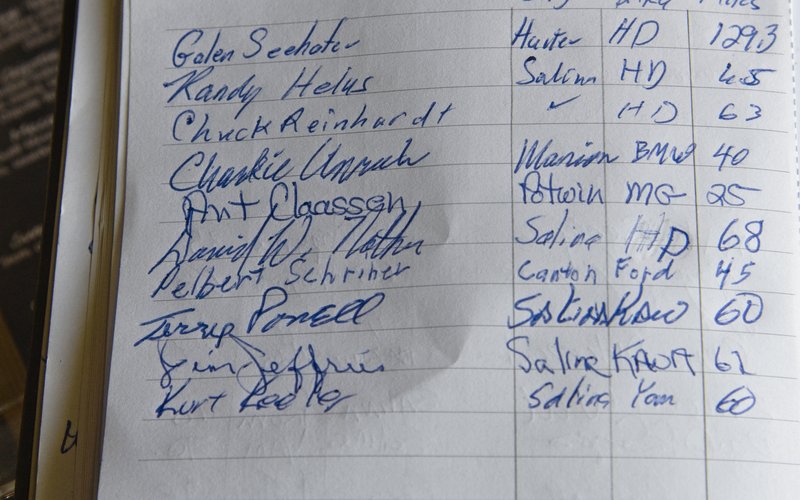 Galen Seehafer HD 1293
Randy Helus Salina HD 45
Chuck Reinhardt ✓ HD 63
Charlie Unruh Marion BMW 40
Art Claassen Potwin MG 25
David W. Salina HD 68
Delbert Schriner Canton Ford 45
Terry Powell Salina KAW 60
Jim Jeffries Salina KAWA 62
Kurt Salina Yam 60